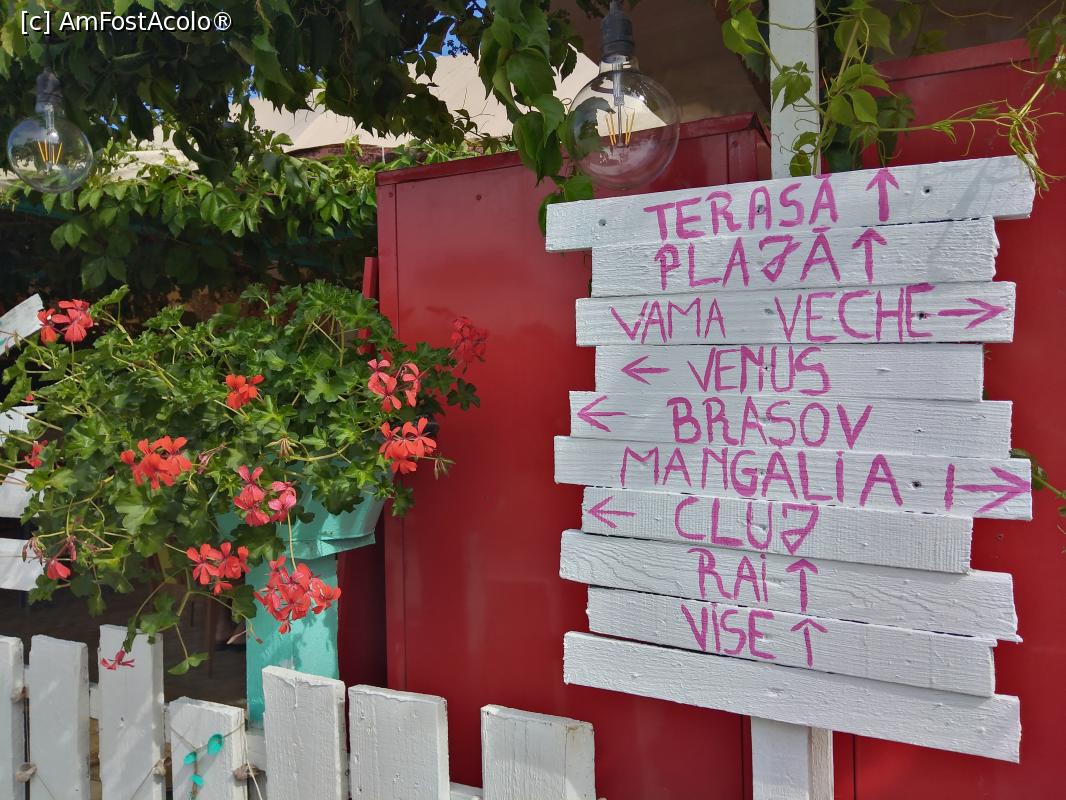 [c] AmFostAcolo®
TERASĂ ↑
PLAJĂ ↑
VAMA VECHE →
← VENUS
← BRASOV
MANGALIA →
← CLUJ
RAi ↑
VISE ↑